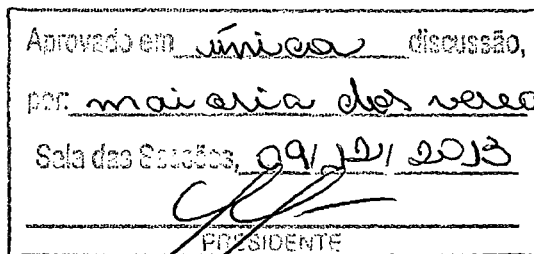 Aprovado em única discussão,
por: maioria dos verea
Sala das Sessões, 09/12/2013
PRESIDENTE